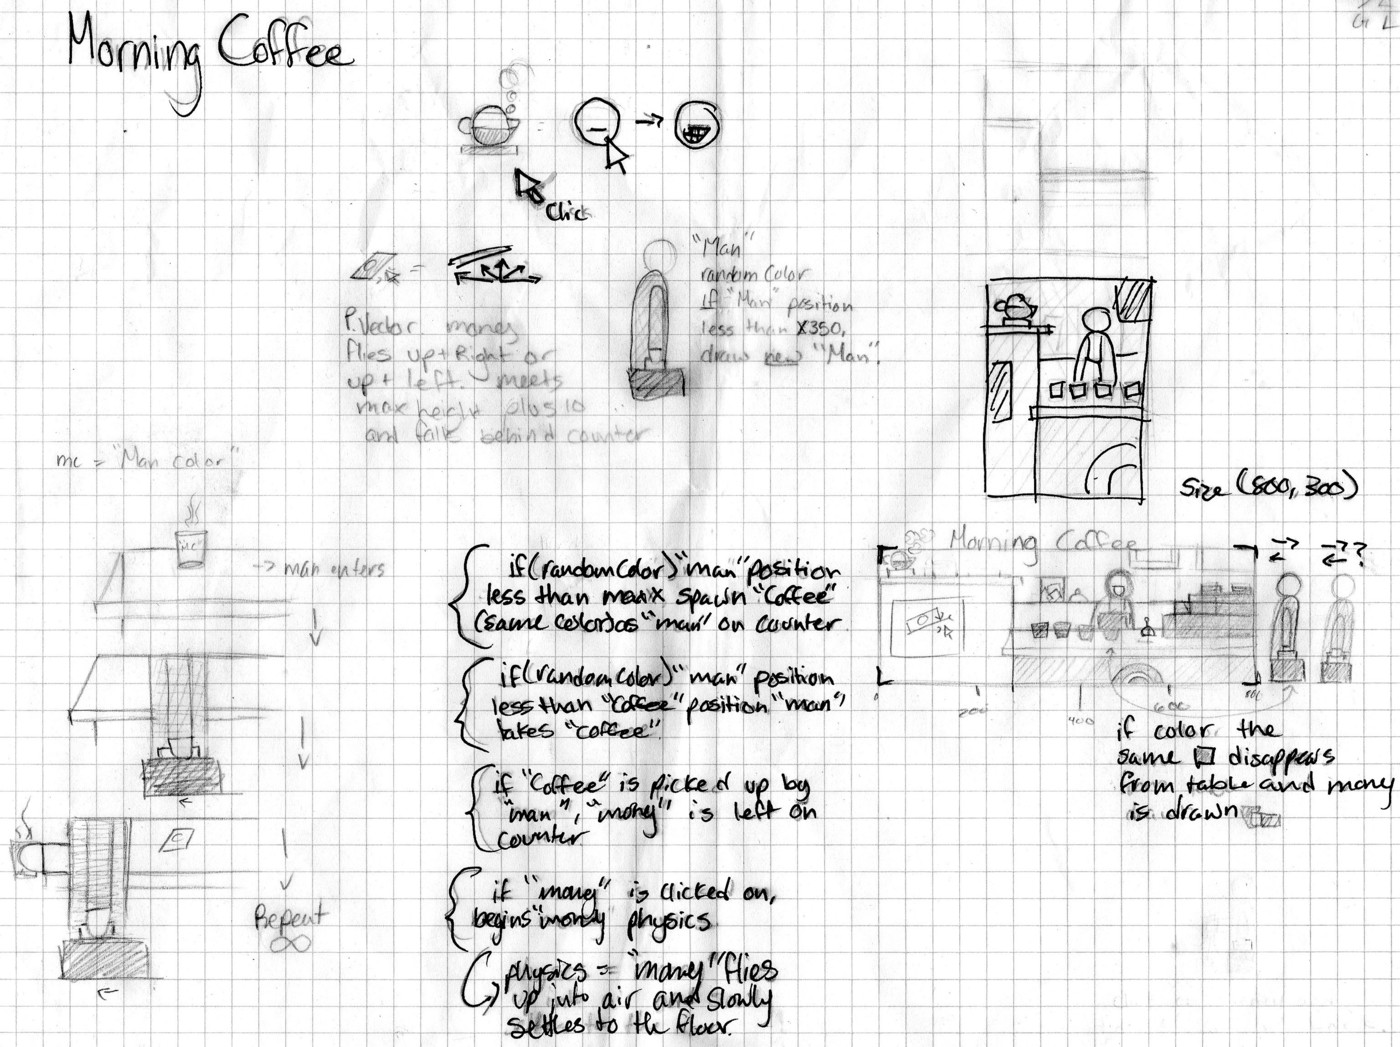 Morning Coffee
Click
"Man"
random Color
If "Man" position
less than X350,
draw new "Man".
P.Vector. money
flies up + Right or
up + left. meets
max height plus 10
and falls behind counter
mc = "Man Color"
"MC"
-> man enters
size (800, 300)
Morning Coffee
200
400
600
800
??
if (random Color) "man" position
less than max x spawn "Coffee"
(same color) as "man" on counter
if (random Color) "man" position
less than "Coffee" position "man"
takes "Coffee".
if "Coffee" is picked up by
"man", "money" is left on
counter
if "money" is clicked on,
begins "money" physics
physics = "money" flies
up into air and slowly
settles to the floor.
if color the
same disappears
from table and money
is drawn
Repeat
∞